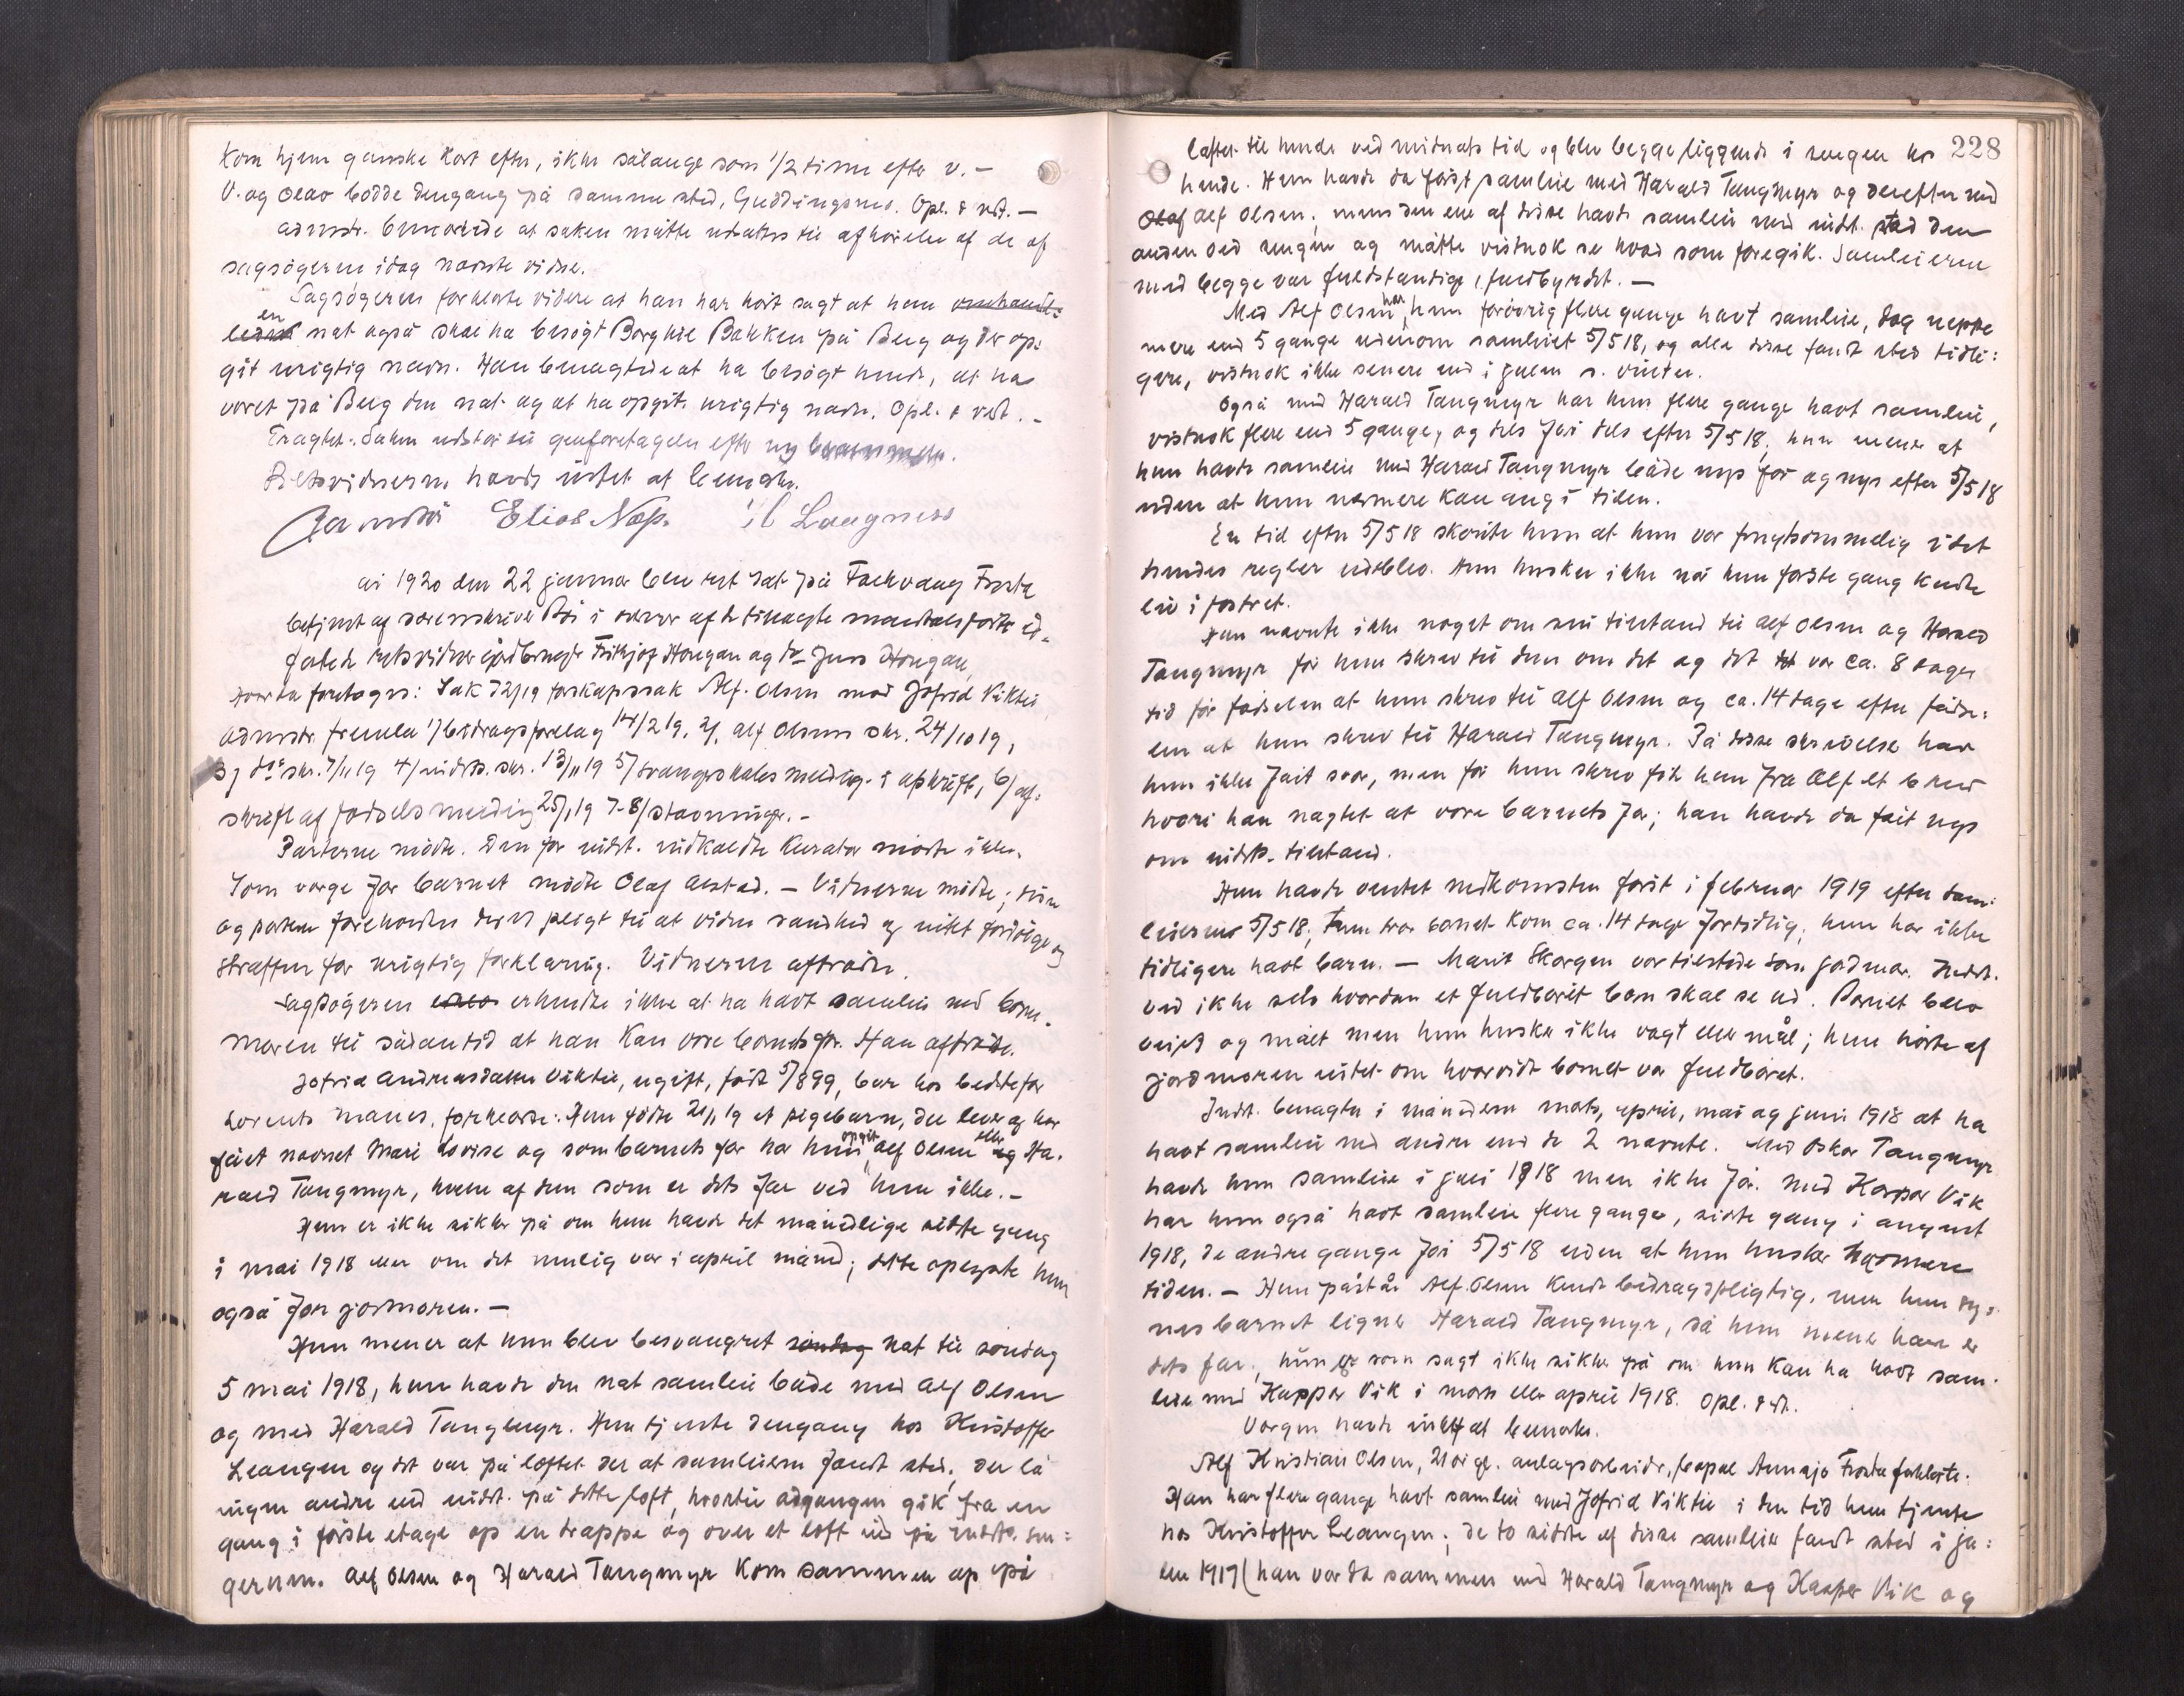 kom hjem ganske kort efter, ikke sålange som 1/2 time efter v. –
V. og Olav bodde dengang på samme sted, Guddingsmo. Opl. & vedt. –
admstr. bemerkede at saken måtte utsættes til afhörelse af de af
sagsögeren idag nævnte vidne.
Sagsögeren forklarte videre at han har hört sagt at han omhandl-
ledes en nat også skal ha besögt Borghil Bakken på Berg og der op-
git urigtig navn. Han benægtede at ha besögt hende, at ha
været på Berg den nat og at ha opgit urigtig navn. Opl. & vedt. –
Fragtet. Saken utstår til genforetagelse efter ny berammelse.
Retsvidnerne havde intet at bemerke.
Elias Næss. Langness
År 1920 den 22 januar blev ret sat på Frosta
betjent af sorenskriver i nærvær af de tilkaldte mandtalsförte ed-
fæstede retsvidner gårdbruger Fritjof Hougan og do Jens Hougan,
hvorda foretoges: Sak 72/19 farskapssak Alf Olsen mod Jofrid Viktil
admstr. fremla 1/ bidragsforelæg 14/2 19, 2/ Alf Olsens skr. 24/10 19,
3/ ds skr. 7/11 19 4/ indst. skr. 13/11 19 5/ svangerskabsmelding i afskrift, 6/ af-
skrift af födselsmelding 25/1 19 7-8/ stævninger. –
Parterne mödte. Den for indst. indkaldte kurator mödte ikke.
Som værge for barnet mödte Olaf Alstad. – Vidnerne mödte; disse
og parterne foreholdtes deres pligt til at vidne sandhed og intet fordölge og
straffen for urigtig forklaring. Vidnerne aftrådte.
Sagsögeren erkendte ikke at ha havt samleie med barne-
moren til sådan tid at han kan være barnets far. Han aftrådte.
Jofrid Andreasdatter Viktil, ugift, född 5/8 99, bor hos bedstefar
Lorents Manes, forklarte: Hun födte 21/1 19 et pigebarn, der lever og har
fået navnet Mari Lovise og som barnets far har hun opgit Alf Olsen eller og Ha-
rald Tangmyr, hvem af dem som er dets far ved hun ikke. –
Hun er ikke sikker på om hun havde det månedlige sidste gang
i mai 1918 eller om det mulig var i april måned; dette oplyste hun
også for jormoren. –
Hun mener at hun blev besvangret söndag nat til söndag
5 mai 1918, hun havde den nat samleie både med Alf Olsen
og med Harald Tangmyr. Hun tjente dengang hos Kristoffer
Leangen og det var på loftet der at samleierne fandt sted, der lå
ingen andre end indst. på dette loft, hvortil adgangen gik fra en
gang i förste etage op en trappe og over et loft ind på indst. sen-
gerum. Alf Olsen og Harald Tangmyr kom sammen op på
228
loftet til hende ved midnats tid og blev begge liggende i sengen hos
hende. Hun havde da först samleie med Harald Tangmyr og derefter med
Olaf Alf Olsen, mens den ene af disse havde samleie med indst. stod den
anden ved sengen og måtte vistnok se hvad som foregik. Samleierne
med begge var fuldstændige, fuldbyrdet. –
Med Alf Olsen har hun forövrig flere gange havt samleie, dog neppe
mere end 5 gange utenom samleiet 5/5 18, og alle disse fandt sted tidli-
gere, vistnok ikke senere end i julen s. vinter.
Også med Harald Tangmyr har hun flere gange havt samleie,
vistnok flere end 5 gange, og dels för dels efter 5/5 18, hun mener at
hun havde samleie med Harald Tangmyr både nys för og nys efter 5/5 18
uden at hun nærmere kan angi tiden.
En tid efter 5/5 18 skönte hun at hun var frugtsommelig idet
hendes regler udeblev. Hun husker ikke når hun förste gang kendte
liv i fostret.
Hun nævnte ikke noget om sin tilstand til Alf Olsen og Harald
Tangmyr för hun skrev til dem om det og det var ca. 8 dager
tid för födselen at hun skrev til Alf Olsen og ca. 14 dage efter födse-
len at hun skrev til Harald Tangmyr. På disse skrivelser har
hun ikke fåit svar, men för hun skrev fik hun fra Alf et brev
hvori han nægtet at være barnets far; han havde da fåit nys
om indst. tilstand.
Hun havde ventet nedkomsten först i februar 1919 efter sam-
leierne 5/5 18, hun tror barnet kom ca. 14 dage fortidlig, hun har ikke
tidligere havt barn. – Marit Skorgen var tilstede som jordmor. Indst.
ved ikke selv hvordan et fuldbåret barn skal se ud. Barnet blev
veiet og målt men hun husker ikke vægt eller mål; hun hörte af
jordmoren intet om hvorvidt barnet var fuldbåret.
Indst. benægter i månederne mars, april, mai og juni 1918 at ha
havt samleie med andre end de 2 nævnte. Med Oskar Tangmyr
havde hun samleie i juli 1918 men ikke för. Med Kaspar Vik
har hun også havt samleie flere ganger, sidste gang i august
1918, de andre gange för 5/5 18 uden at hun husker nærmere
tiden. – Hun påstår Alf Olsen kendt bidragspligtig, men hun sy-
nes barnet ligner Harald Tangmyr, så hun mener han er
dets far, hun er som sagt ikke sikker på om hun kan ha havt sam-
leie med Kaspar Vik i mars eller april 1918. Opl. & vedt.
Værgen havde intet at bemerke.
Alf Kristian Olsen, 21 år gl. anlægsarbeider, bopæl Frosta forklarte:
Han har flere gange havt samleie med Jofrid Viktil i den tid hun tjente
hos Kristoffer Leangen; de to sidste af disse samleier fandt sted i ju-
len 1917 (han var da sammen med Harald Tangmyr og Kaspar Vik og